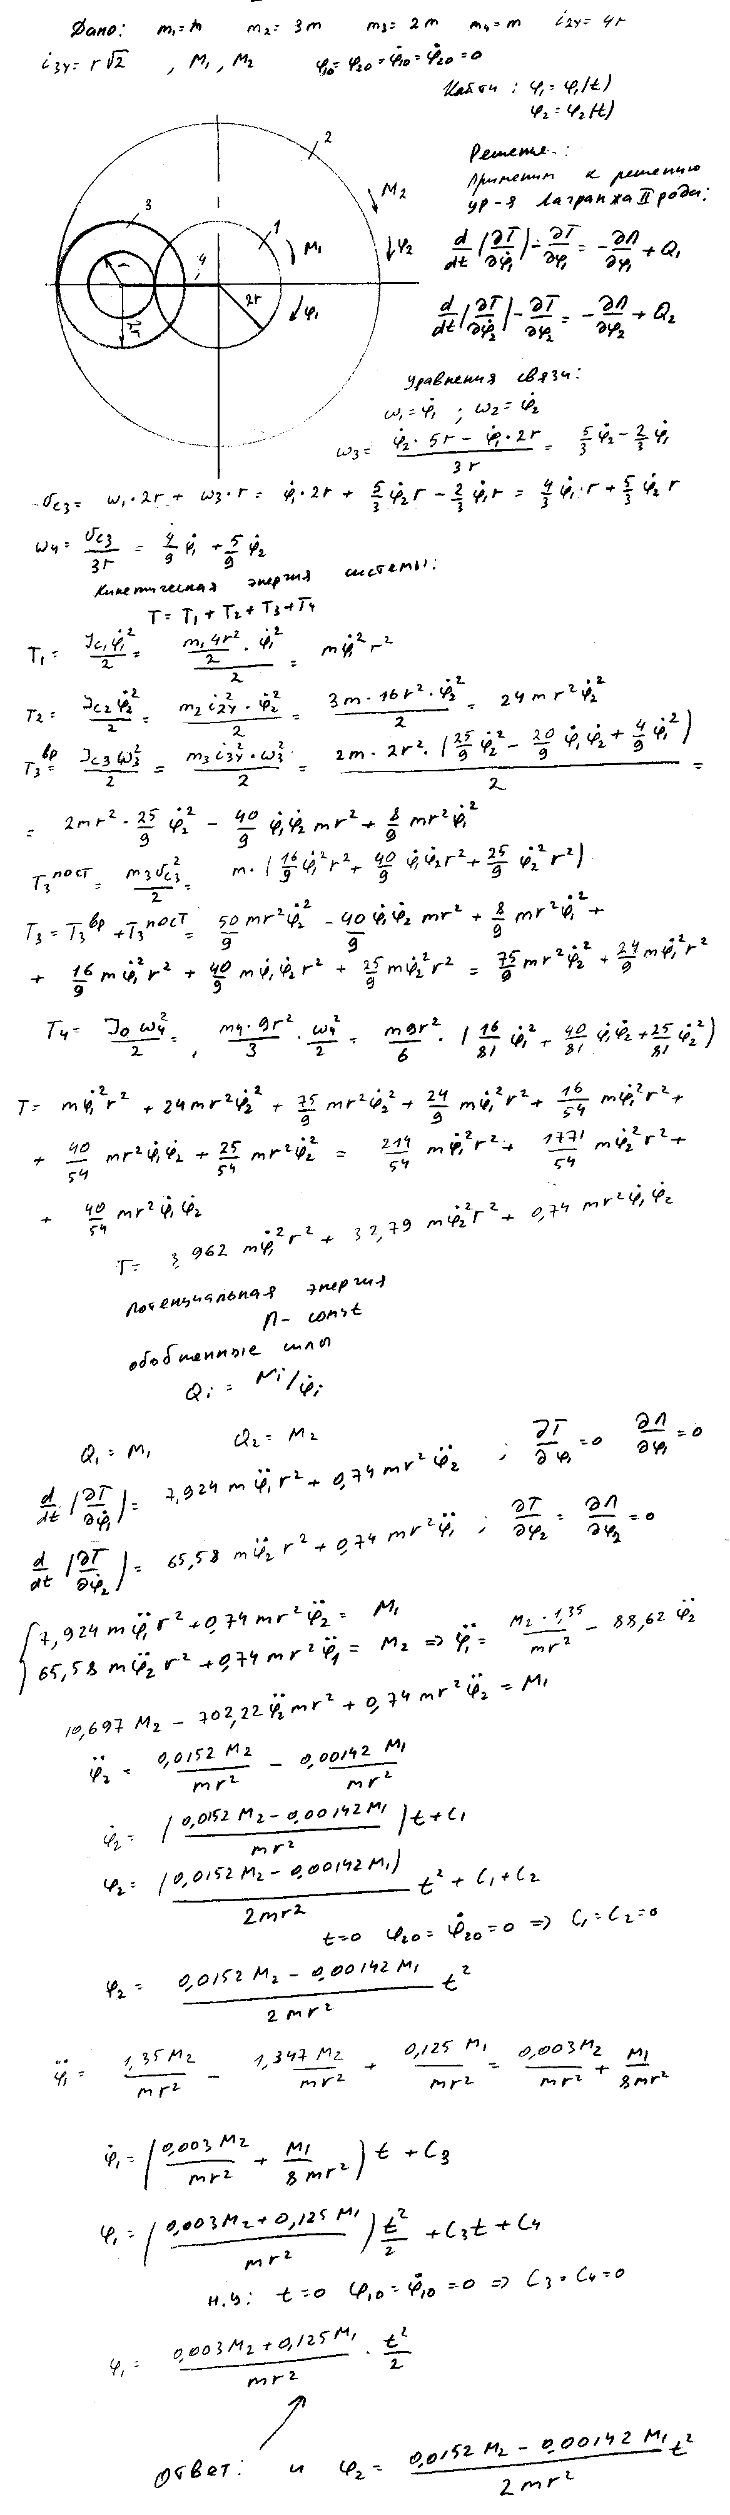 Дано: m₁=m m₂=3m m₃=2m m₄=m i₂y=4r
i₃y=r√2 , M₁, M₂ φ₁₀=φ₂₀=φ̇₁₀=φ̇₂₀=0
Найти: φ₁=φ₁(t)
φ₂=φ₂(t)
Решение:
Применим к решению
ур-я Лагранжа II рода:
d/dt(∂T/∂φ̇₁)-∂T/∂φ₁=-∂П/∂φ₁+Q₁
d/dt(∂T/∂φ̇₂)-∂T/∂φ₂=-∂П/∂φ₂+Q₂
2
3
1
4
M₁
M₂
φ₂
φ₁
r
2r
уравнения связи:
ω₁=φ̇₁ ; ω₂=φ̇₂
ω₃= (φ̇₂·5r-φ̇₁·2r)/3r = 5/3 φ̇₂-2/3 φ̇₁
𝒱c₃= ω₁·2r+ω₃·r= φ̇₁·2r+ 5/3 φ̇₂r-2/3 φ̇₁r = 4/3 φ̇₁·r+5/3 φ̇₂ r
ω₄= 𝒱c₃/3r = 4/9 φ̇₁+5/9 φ̇₂
Кинетическая энергия системы:
T=T₁+T₂+T₃+T₄
T₁= Jc₁φ̇₁²/2 = (m₁4r²/2·φ̇₁²)/2 = mφ̇₁²r²
T₂= Jc₂φ̇₂²/2 = m₂i₂y²·φ̇₂²/2 = 3m·16r²·φ̇₂²/2 = 24mr²φ̇₂²
T₃ᵇᵖ= Jc₃ω₃²/2 = m₃i₃y²·ω₃²/2 = 2m·2r²·(25/9 φ̇₂²-20/9 φ̇₁φ̇₂+4/9 φ̇₁²)/2 =
= 2mr²·25/9 φ̇₂²-40/9 φ̇₁φ̇₂mr²+8/9 mr²φ̇₁²
T₃пост= m₃𝒱c₃²/2= m·(16/9 φ̇₁²r²+40/9 φ̇₁φ̇₂r²+25/9 φ̇₂²r²)
T₃=T₃ᵇᵖ+T₃пост= 50/9 mr²φ̇₂²-40/9 φ̇₁φ̇₂mr²+8/9 mr²φ̇₁²+
+ 16/9 mφ̇₁²r²+40/9 mφ̇₁φ̇₂r²+25/9 mφ̇₂²r² = 75/9 mr²φ̇₂²+24/9 mφ̇₁²r²
T₄= J₀ω₄²/2= m₄·9r²/3·ω₄²/2= m9r²/6·(16/81 φ̇₁²+40/81 φ̇₁φ̇₂+25/81 φ̇₂²)
T= mφ̇₁²r²+24mr²φ̇₂²+75/9 mr²φ̇₂²+24/9 mφ̇₁²r²+16/54 mφ̇₁²r²+
+ 40/54 mr²φ̇₁φ̇₂+25/54 mr²φ̇₂² = 214/54 mφ̇₁²r²+1771/54 mφ̇₂²r²+
+ 40/54 mr²φ̇₁φ̇₂
T= 3,962 mφ̇₁²r²+32,79 mφ̇₂²r²+0,74 mr²φ̇₁φ̇₂
потенциальная энергия
П-const
обобщенные силы
Qi= Mi/φ̇i
Q₁=M₁ Q₂=M₂
d/dt(∂T/∂φ̇₁)= 7,924 mφ̈₁r²+0,74mr²φ̈₂ ; ∂T/∂φ₁=0 ∂П/∂φ₁=0
d/dt(∂T/∂φ̇₂)= 65,58 mφ̈₂r²+0,74mr²φ̈₁ ; ∂T/∂φ₂=∂П/∂φ₂=0
7,924mφ̈₁r²+0,74mr²φ̈₂= M₁
65,58mφ̈₂r²+0,74mr²φ̈₁= M₂ ⇒ φ̈₁= M₂·1,35/mr²-88,62φ̈₂
10,697M₂-702,22φ̈₂mr²+0,74mr²φ̈₂=M₁
φ̈₂= 0,0152M₂/mr² - 0,00142M₁/mr²
φ̇₂= ((0,0152M₂-0,00142M₁)/mr²)t+C₁
φ₂= (0,0152M₂-0,00142M₁)/2mr² t²+C₁+C₂
t=0 φ₂₀=φ̇₂₀=0 ⇒ C₁=C₂=0
φ₂= (0,0152M₂-0,00142M₁)/2mr² t²
φ̈₁= 1,35M₂/mr² - 1,347M₂/mr² + 0,125M₁/mr² = 0,003M₂/mr² + M₁/8mr²
φ̇₁= (0,003M₂/mr² + M₁/8mr²)t+C₃
φ₁= ((0,003M₂+0,125M₁)/mr²)t²/2+C₃t+C₄
н.у: t=0 φ₁₀=φ̇₁₀=0 ⇒ C₃=C₄=0
φ₁= (0,003M₂+0,125M₁)/mr²·t²/2
Ответ: и φ₂= (0,0152M₂-0,00142M₁)/2mr² t²